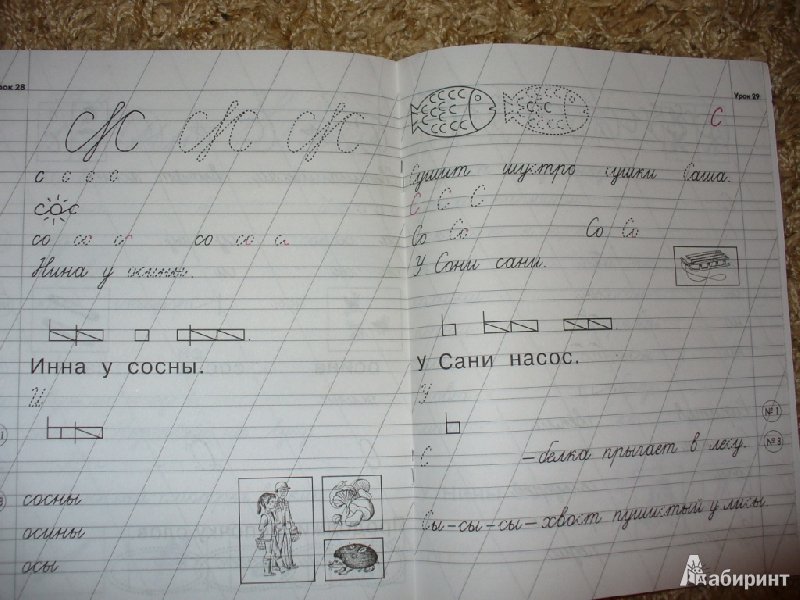 Урок 28
с с с с
сос
со со со со
Нина у осины.
Инна у сосны.
И
сосны
осины
осы
Урок 29
С
Сушит шустро сушки Саша.
С С С
Со Со Со Со
У Сони сани.
У Сани насос.
У
№1
С – белка прыгает в лесу.
№3
Сы-сы-сы-хвост пушистый у лисы.
Лабиринт